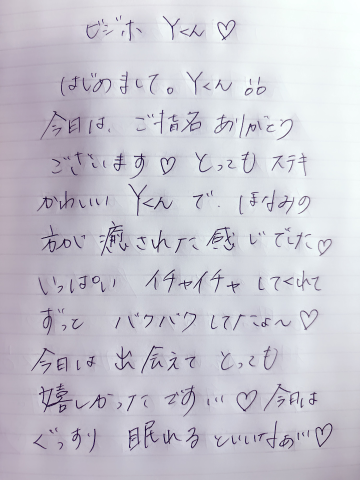 ビジホ Yくん♡
はじめまして。Yくん
今日は、ご指名ありがとう
ございます♡とってもステキ
かわいいYくんで、ほなみの
方が癒された感じでした♡
いっぱい イチャイチャしてくれて
ずっと バクバクしてたよ〜♡
今日は出会えてとっても
嬉しかったです…♡今日は
ぐっすり眠れるといいなぁ…♡